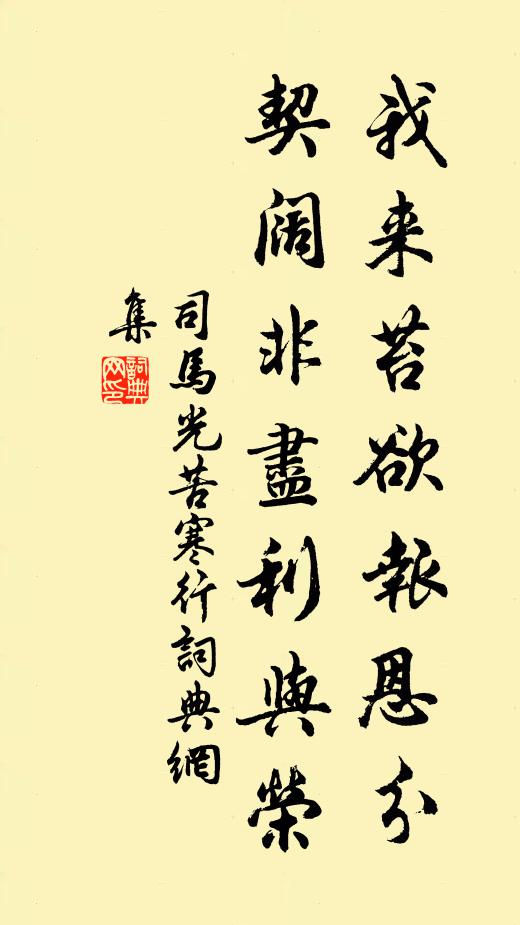 我来苔欲報恩分
契闊非盡利與榮
司馬光苦寒行詞典網
集
詞典
网印